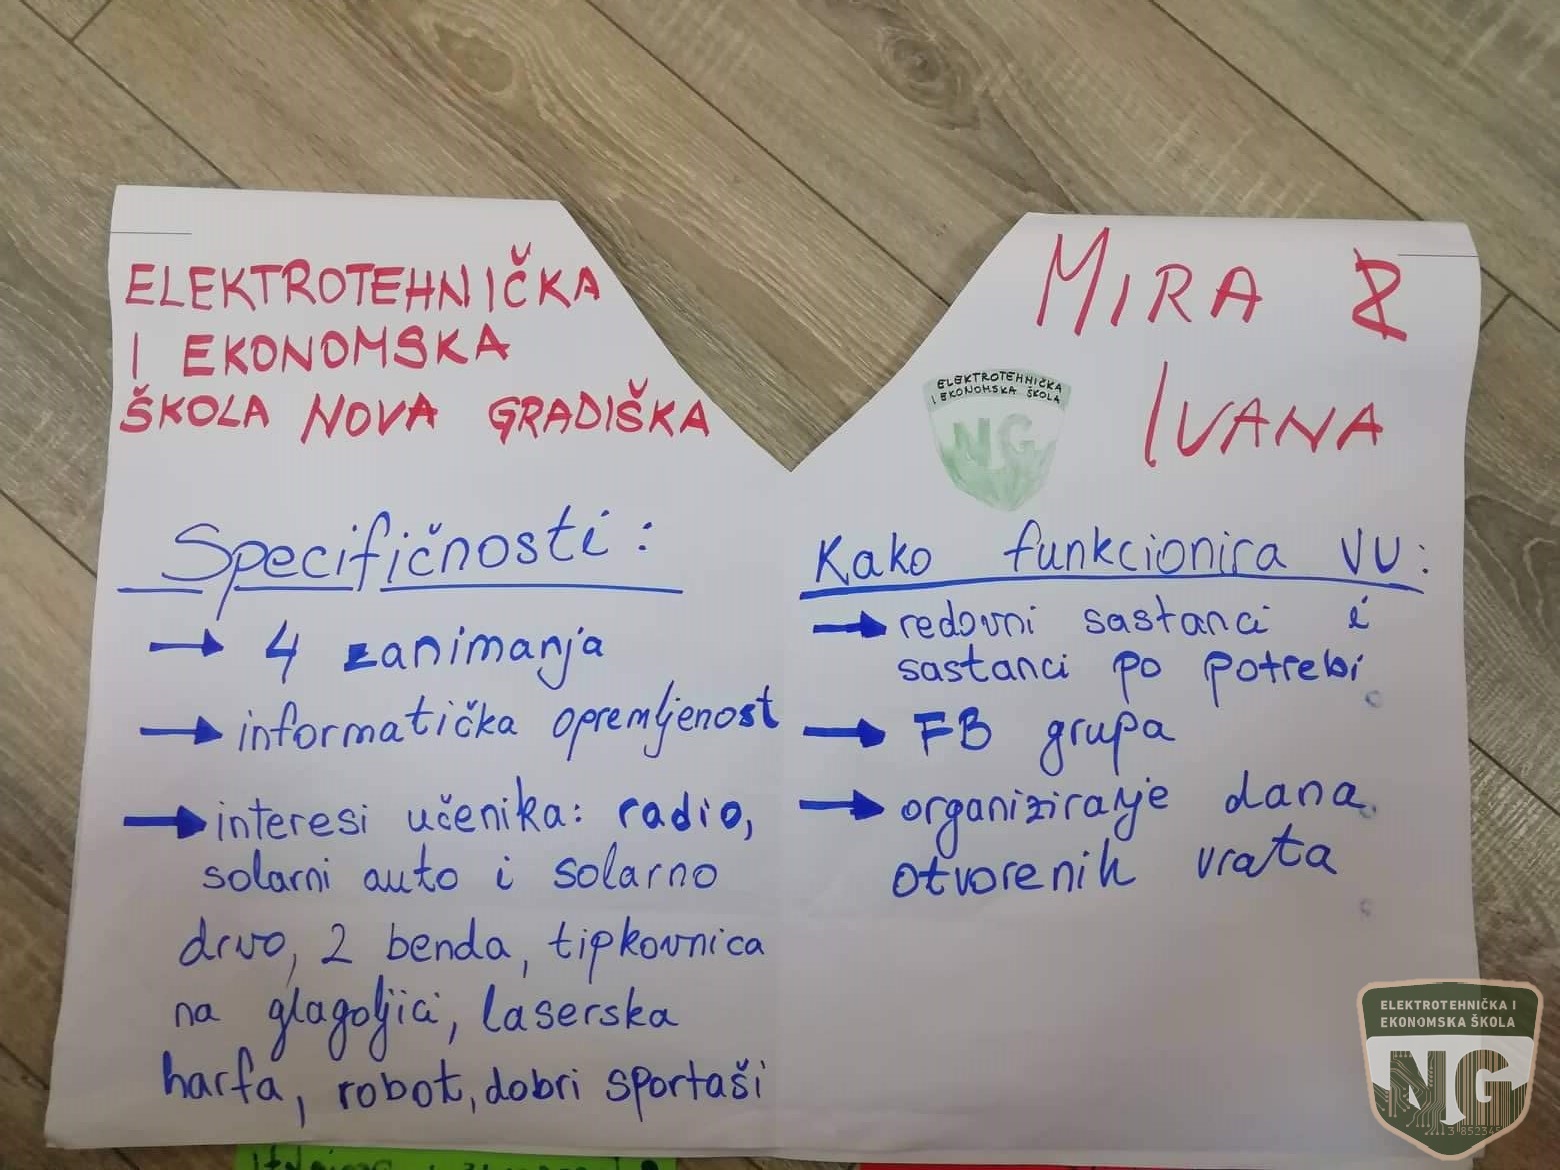 ELEKTROTEHNIČKA
I EKONOMSKA
ŠKOLA NOVA GRADIŠKA
MIRA &
IVANA
ELEKTROTEHNIČKA
I EKONOMSKA ŠKOLA
NG
Specifičnosti:
→ 4 zanimanja
→ informatička opremljenost
→ interesi učenika: radio,
solarni auto i solarno
drvo, 2 benda, tipkovnica
na glagoljici, laserska
harfa, robot, dobri sportaši
Kako funkcionira VU:
→ redovni sastanci i
sastanci po potrebi
→ FB grupa
→ organiziranje dana
otvorenih vrata
ELEKTROTEHNIČKA I
EKONOMSKA ŠKOLA
NG